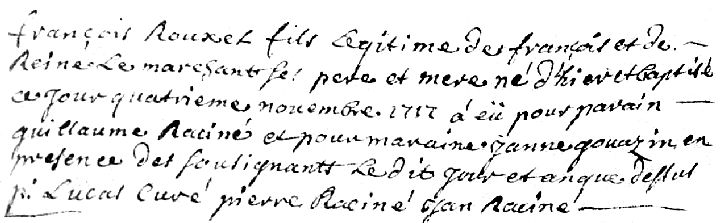 françois Rouxel fils Legitime de françois et de
Reine Le marchant ses pere et mere né d'hier et baptisé
ce jour quatrieme novembre 1717 à eü pour parain
guillaume Raciné et pour maraine janne gouazin en
presence des sousignants Le dit jour et an que dessus
p: Lucas Curé pierre Raciné jan Raciné